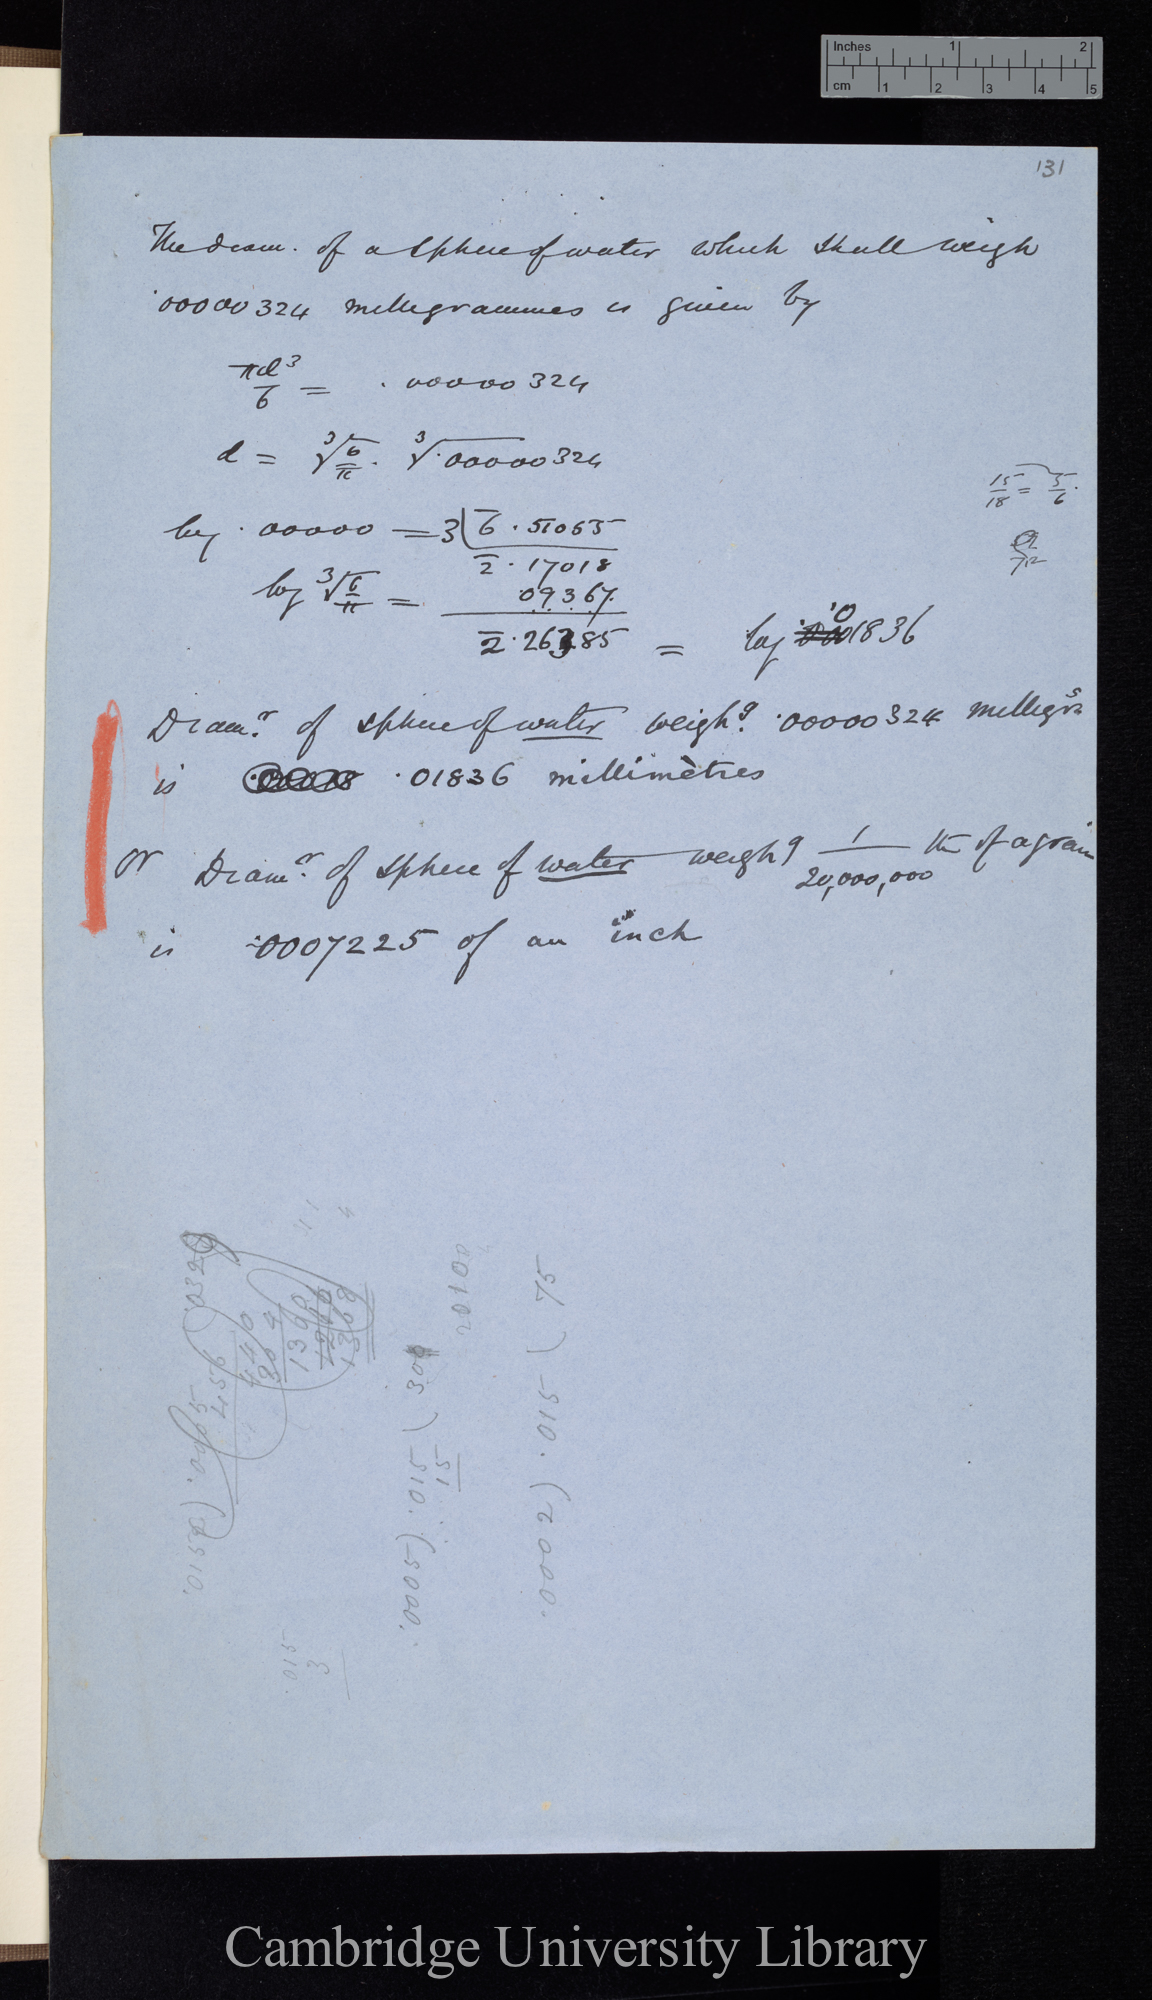 Inches 1 2
cm 1 2 3 4 5
131
The diam. of a sphere of water which shall weigh
.00000324 millegrammes is given by
πd³/6 = .00000324
d = ³√6/π . ³√.00000324
15/18 = 5/6.
log .00000 = 3 | 6̄.51055
2̄.17018
log ³√6/π = .09367
2̄.26385 = log .01836
Diamr. of sphere of water weighg. .00000324 millegrs
is .01836 millimètres
or Diamr. of sphere of water weighg 1/20,000,000 th of a grain
is .0007225 of an inch
.0002) .015 ( 75
.0005) .015 ( 300
15
.015
3
Cambridge University Library